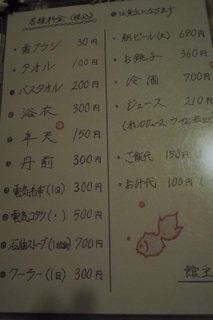 各種料金(税込)
・歯ブラシ 30円
・タオル 100円
・バスタオル 200円
・浴衣 300円
・半天 150円
・丹前 300円
電気毛布(1日) 300円
電気コタツ(〃) 500円
石油ストーブ 700円
クーラー(1日) 300円
・瓶ビール(大) 690円
・お銚子 360円
・冷酒 700円
・ジュース 210円
(オレンジジュース・ウーロン茶
・ご飯代 150円
・お汁代 100円
館主